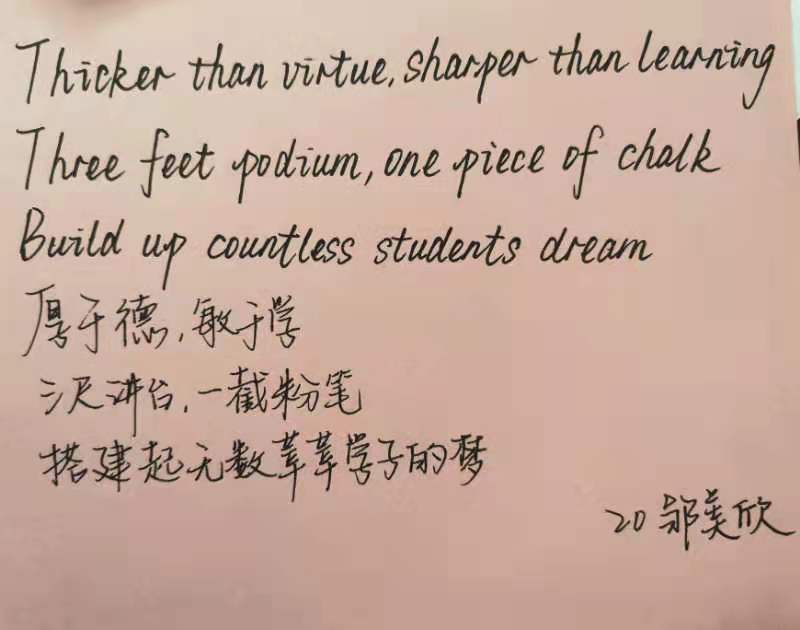 Thicker than virtue, sharper than learning
Three feet podium, one piece of chalk
Build up countless students dream
厚于德,敏于学
三尺讲台,一截粉笔
搭建起无数莘莘学子的梦
20 邬美欣